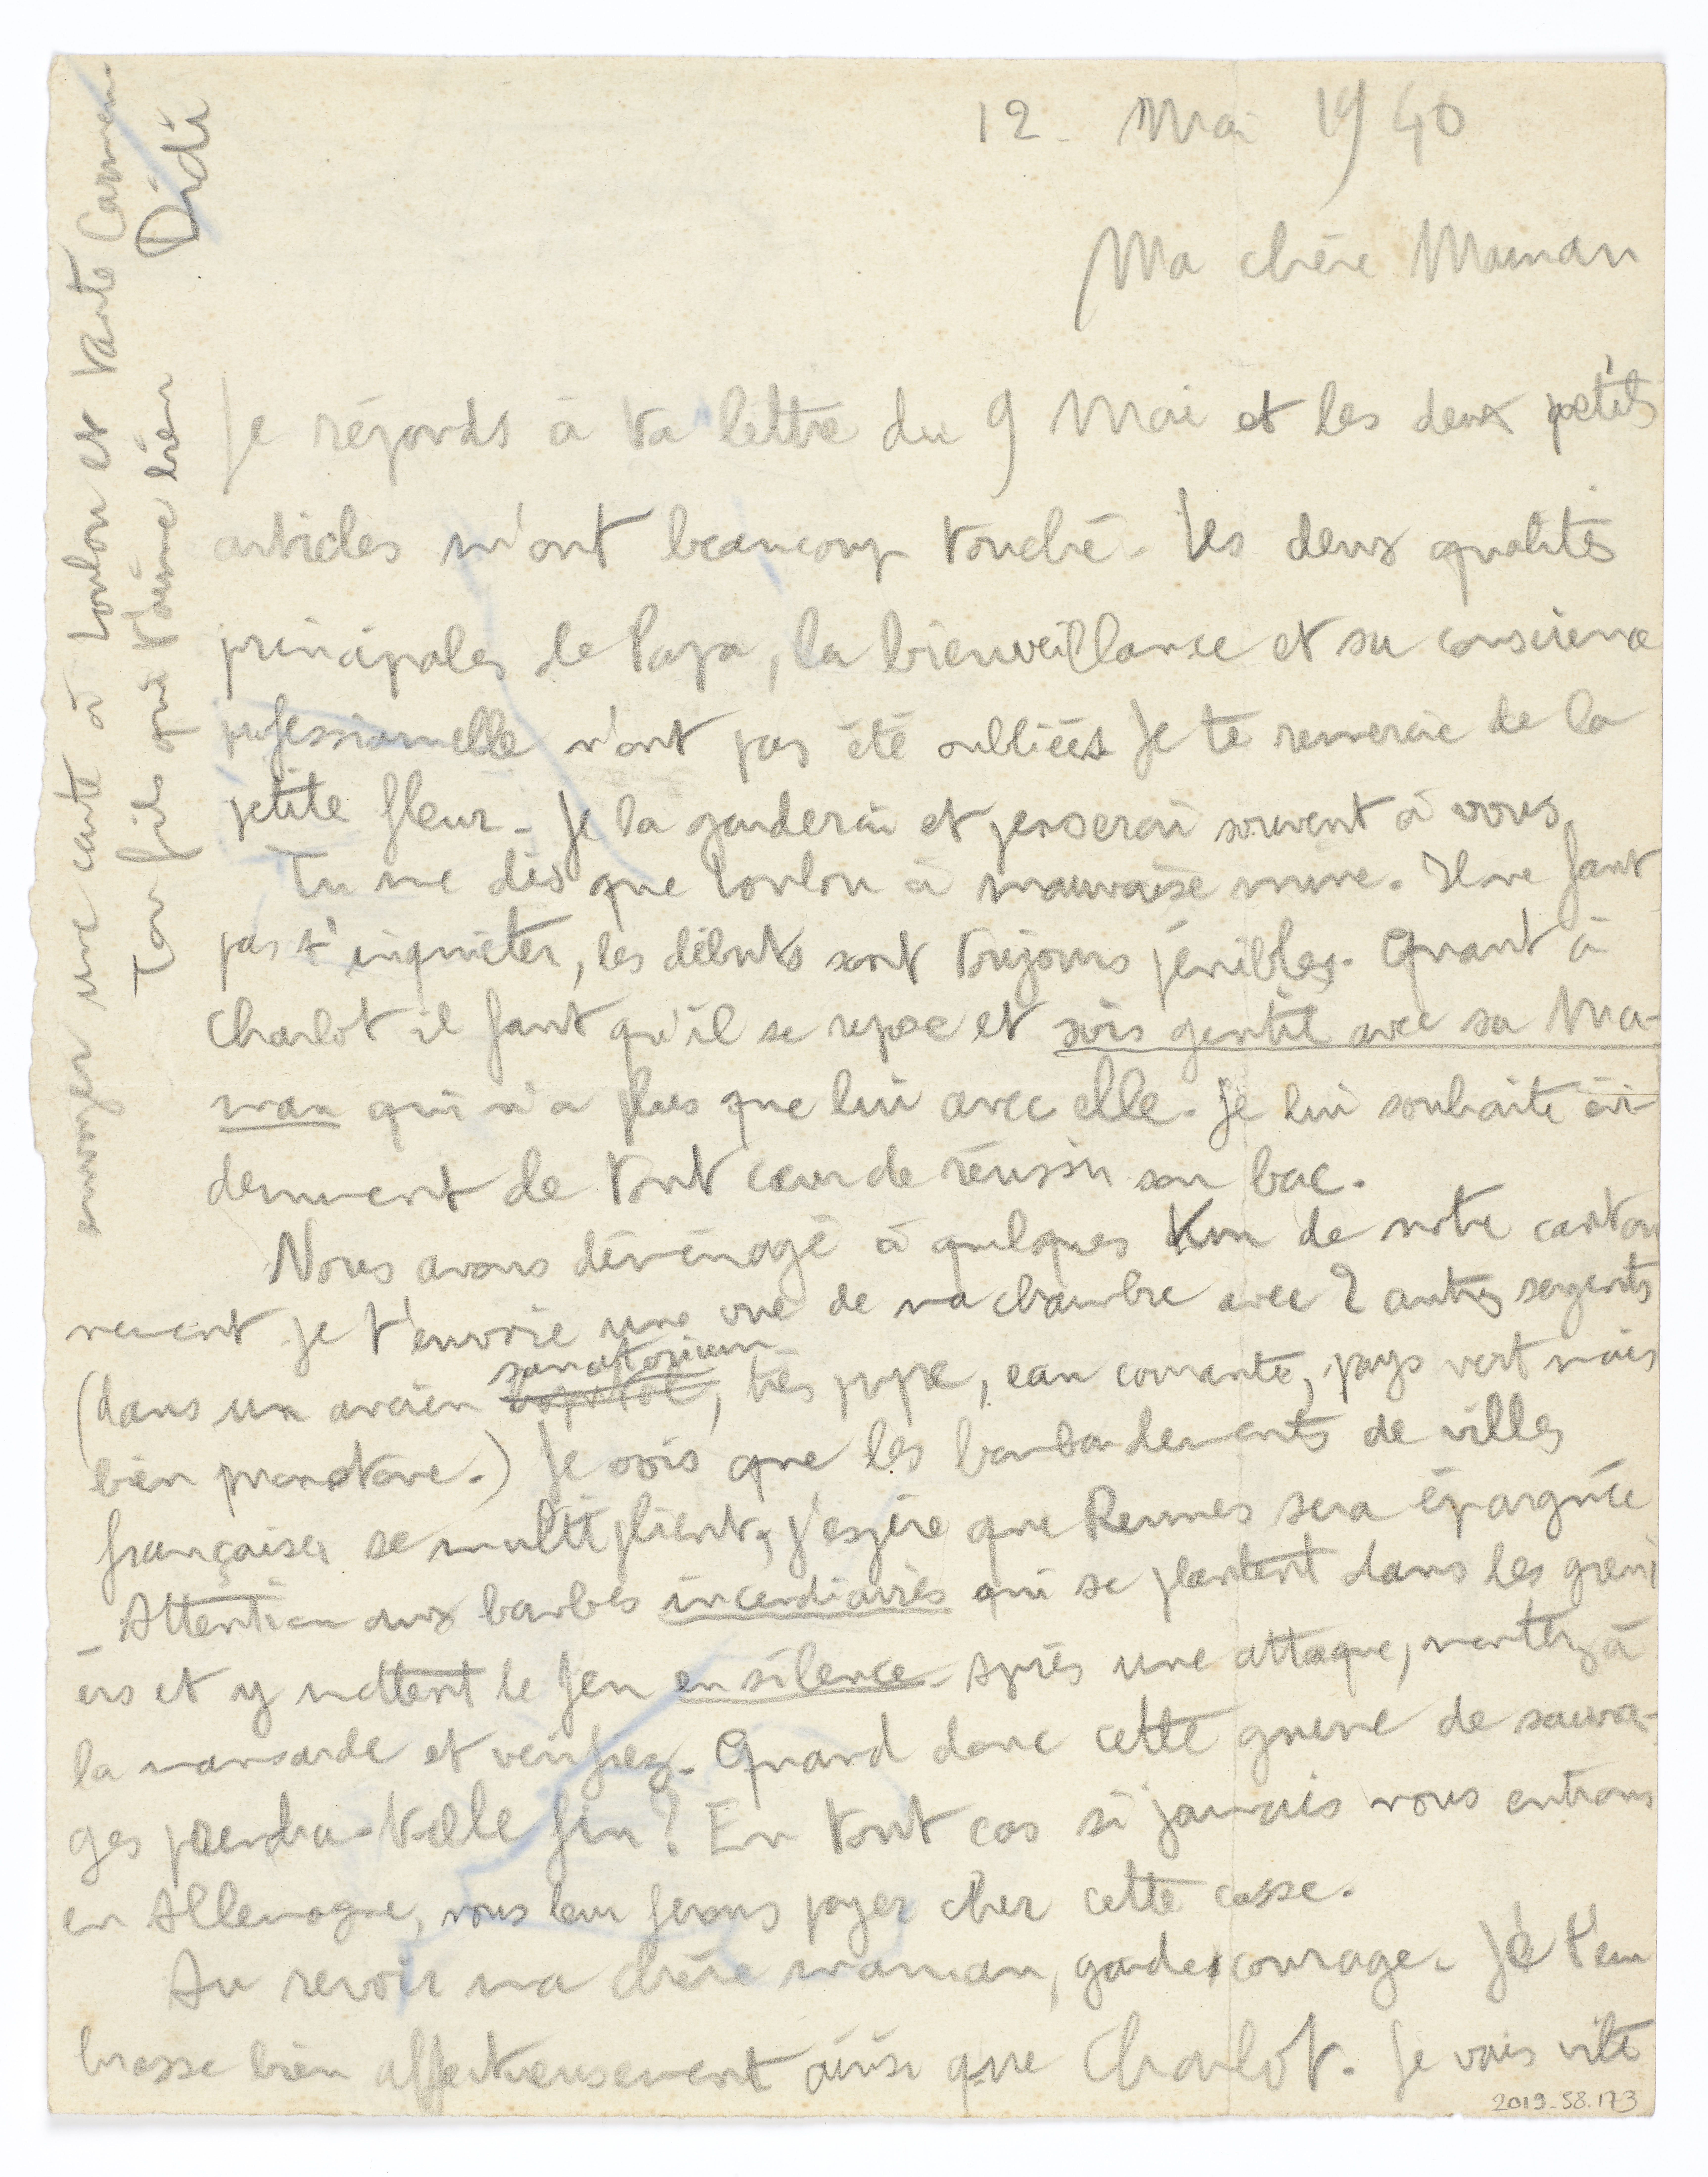 12 - Mai 1940
Ma chère Maman
Je réponds à ta lettre du 9 Mai et les deux petits
articles m'ont beaucoup touché. Les deux qualités
principales de Papa, la bienveillance et sa conscience
professionnelle n'ont pas été oubliées Je te remercie de la
petite fleur - Je la garderai et penserai souvent à vous.
Tu me dis que Loulou a mauvaise mine. Il ne faut
pas s'inquiéter, les débuts sont toujours pénibles. Quant à
Charlot il faut qu'il se repose et sois gentil avec sa Ma-
man qui n'a plus que lui avec elle. Je lui souhaite évi-
demment de tout cœur de réussir son bac.
Nous avons déménagé à quelques Km de notre canton
nement je t'envoie une vue de ma chambre avec 2 autres sergents
(dans un ancien hopital sanatorium, très propre, eau courante, pays vert mais
bien monotone.) Je vois que les bombardements de villes
françaises se multiplient, j'espère que Rennes sera épargnée
Attention aux bombes incendiaires qui se plantent dans les greni
ers et y mettent le feu en silence - Après une attaque, montez à
la mansarde et vérifiez. Quand donc cette guerre de sauva-
ges prendra-t-elle fin ? En tout cas si jamais nous entrons
en Allemagne, nous leur ferons payer cher cette casse.
Au revoir ma chère maman, garde courage. Je t'em
brasse bien affectueusement ainsi que Charlot. Je vais vite
envoyer une carte à Loulou et tante Carmen
Ton fils qui t'aime bien
Didi
2019-58.173